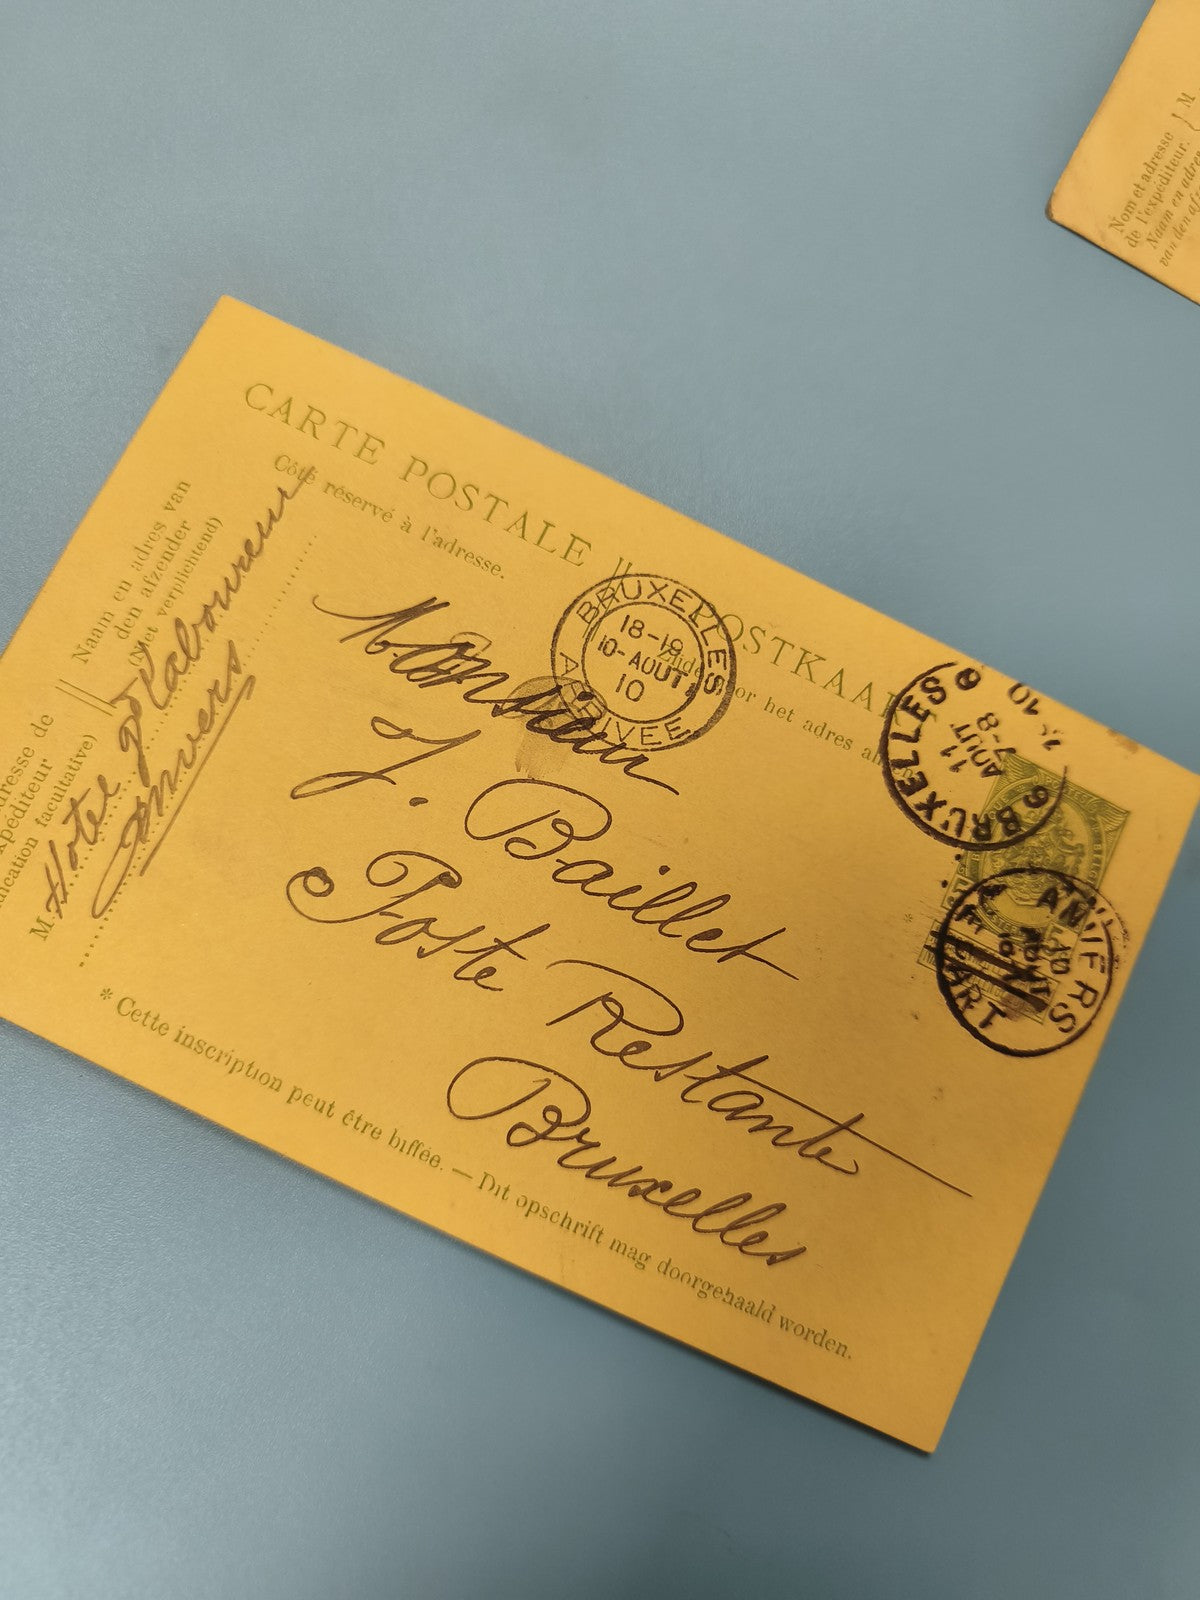 CARTE POSTALE || POSTKAART
Côté réservé à l'adresse.
Zijde voor het adres
BRUXELLES
18-19
10-AOUT
10
ARRIVEE
BRUXELLES
11
AOUT
7-8
10
6
6
ANVERS
10
AOUT
DEPART
Monsieur
J. Baillet
Poste Restante
Bruxelles
* Cette inscription peut être biffée. — Dit opschrift mag doorgehaald worden.
Naam en adres van
den afzender
(Niet verplichtend)
dresse de
xpéditeur
dication facultative)
M Hotel gd Laboureur
Anvers
Nom et adresse
de l'expéditeur.
Naam en adres
van den afz
M